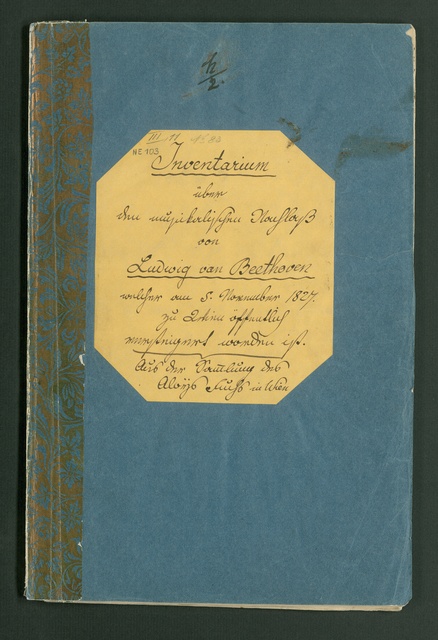 h/2.
III 11
NE 103
Inventarium
über
den musikalischen Nachlaß
von
Ludwig van Beethoven
welcher am 5. November 1827.
zu Wien öffentlich
versteigert worden ist.
Aus der Sammlung des
Aloys Fuchs in Wien